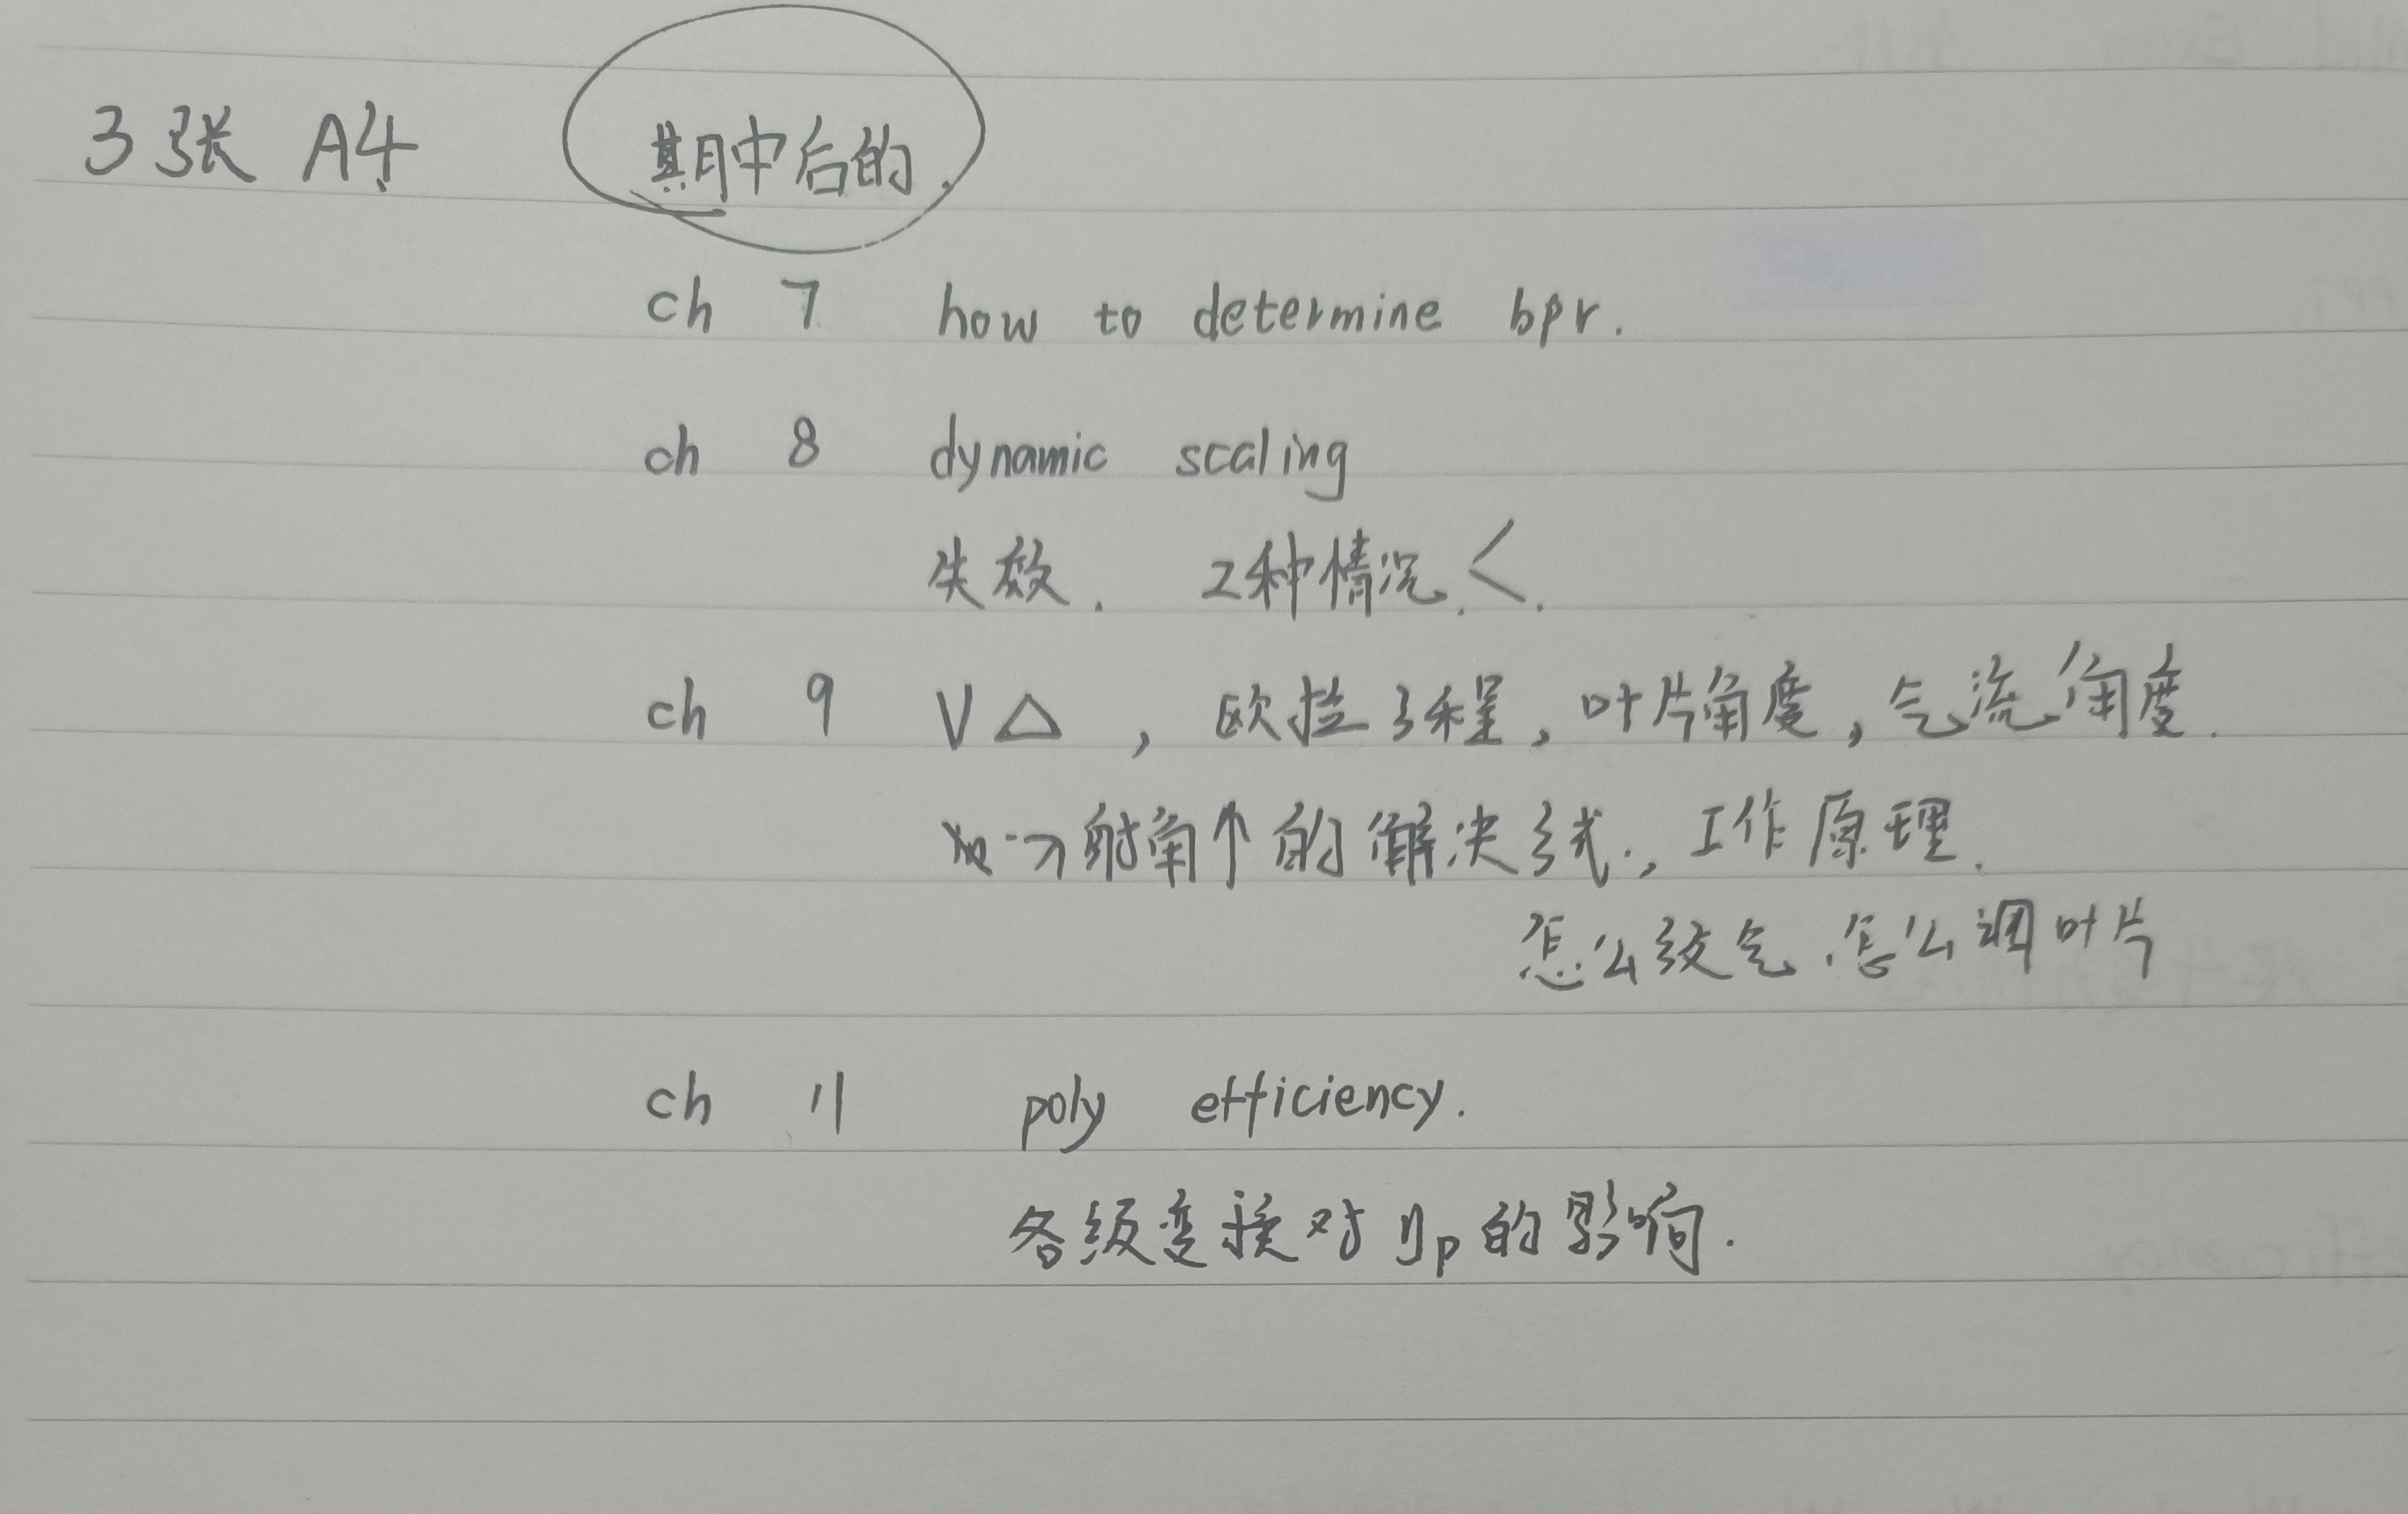 3张 A4 期中后的.
ch 7 how to determine bpr.
ch 8 dynamic scaling
失效. 2种情况.<.
ch 9 V△, 欧拉方程, 叶片角度, 气流角度.
射角↑的解决方式., 工作原理.
怎么放气.怎么调叶片
ch 11 poly efficiency.
各级变换对ηp的影响.